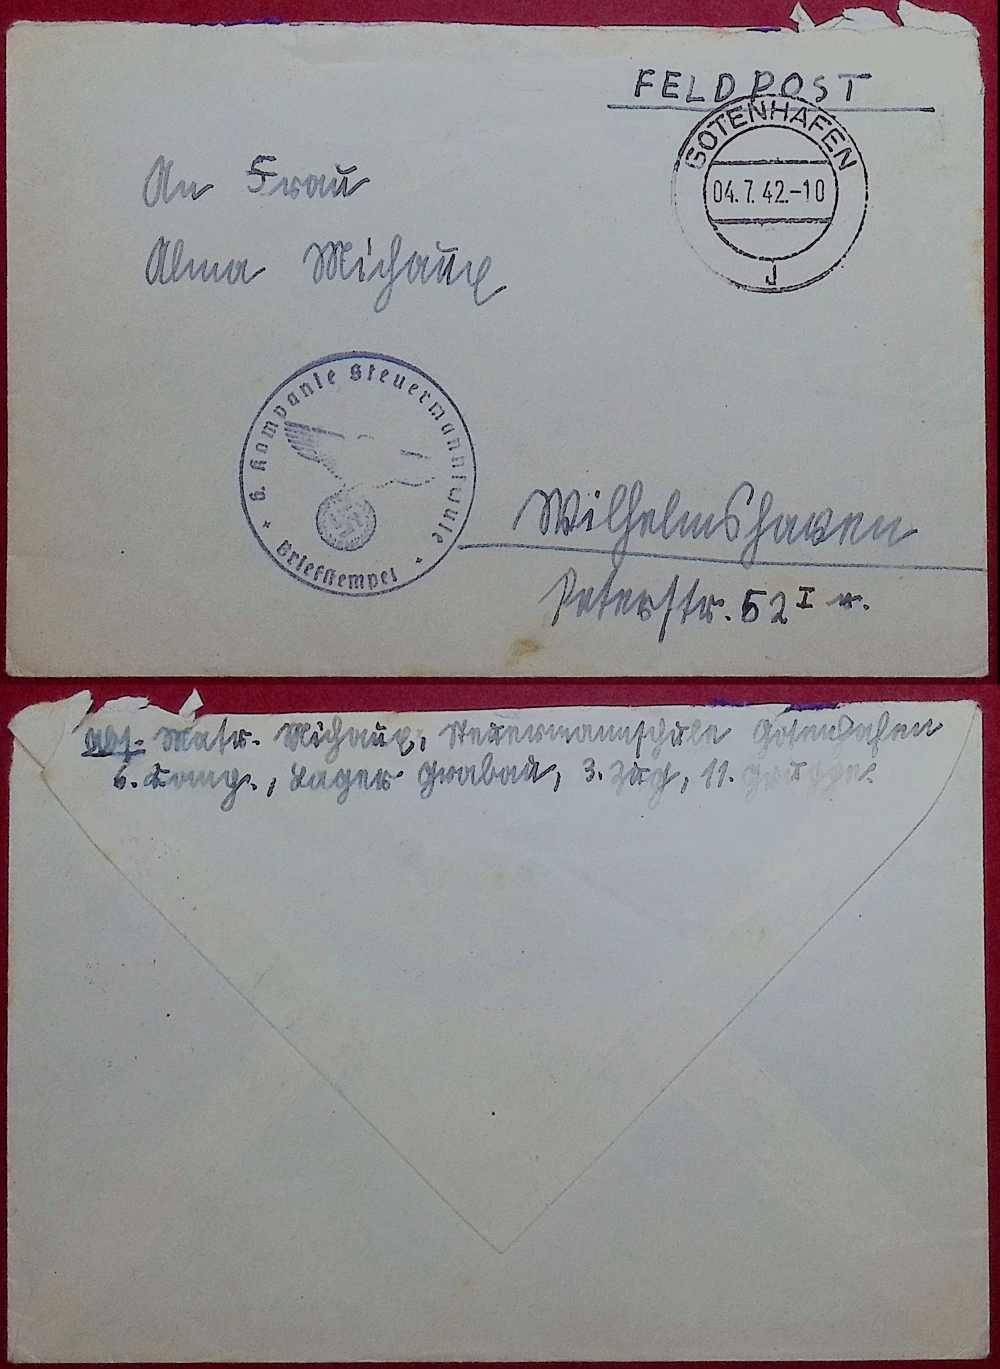 FELDPOST
GOTENHAFEN
04.7.42.-10
J
An Frau
Alma Michaux
6. Kompanie Steuermannschule
* Briefstempel *
Wilhelmshaven
Peterstr. 52 I r.
Abs. Matr. Michaux, Steuermannschule Gotenhafen
6. Komp., Lager Grabau, 3. Zug, 11. Gruppe